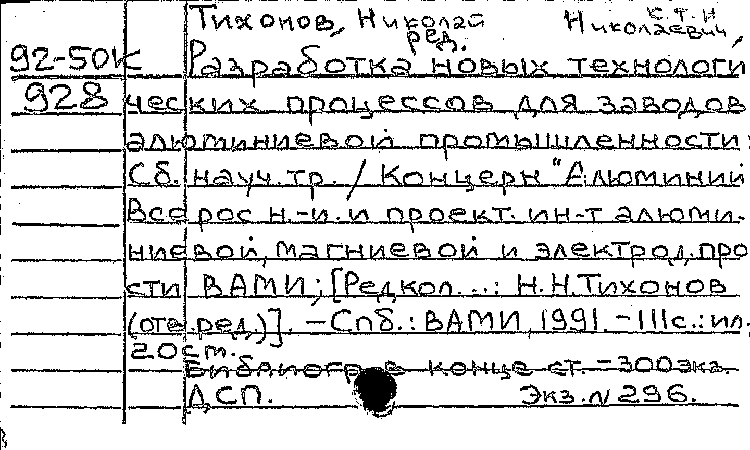 Тихонов, Николай Николаевич,
с.т.н
ред.
92-50к Разработка новых технологи
928 ческих процессов для заводов
алюминиевой промышленности:
Сб. науч. тр. / Концерн "Алюминий
Всерос н.-и. и проект. ин-т алюми-
ниевой, магниевой и электрод. про
сти ВАМИ; [Редкол...: Н.Н.Тихонов
(отв. ред.)]. – Спб.: ВАМИ, 1991. – 111с.: ил.
20 см.
Библиогр. в конце ст. – 300 экз.
ДСП. Экз. N 296.